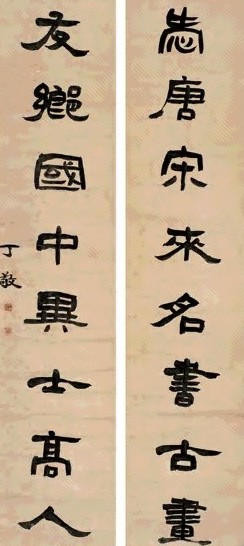 志唐宋來名書古畫
友鄉國中異士高人
丁敬